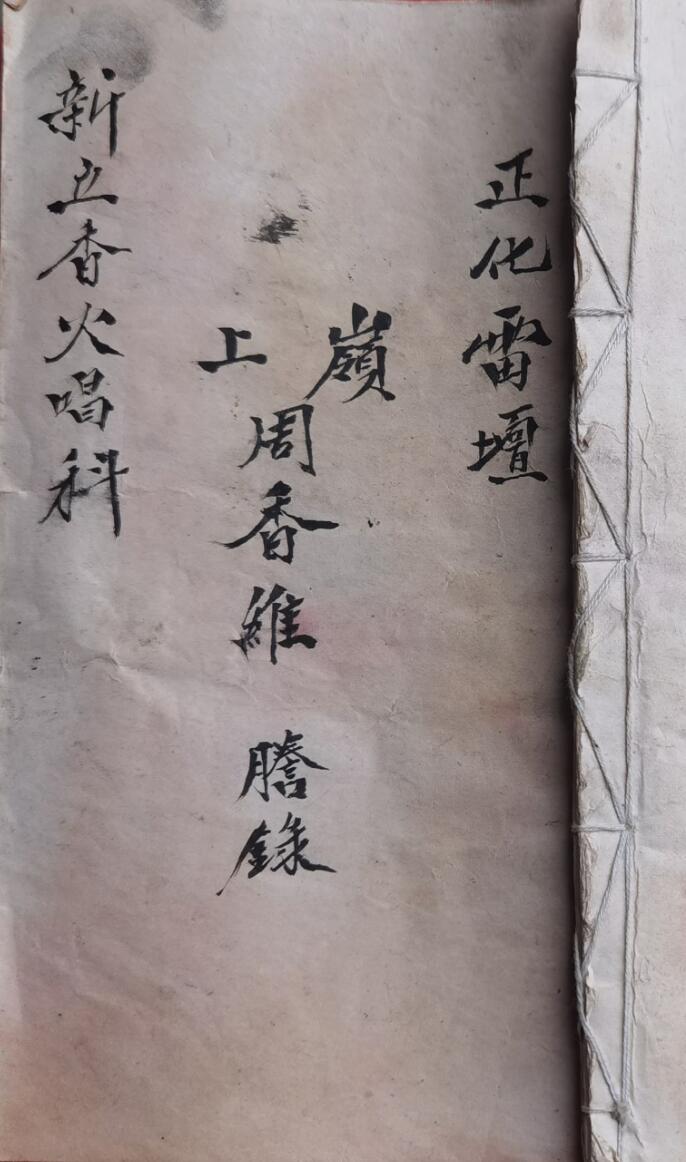 正化雷壇
嶺上
周香維 謄錄
新立香火唱科